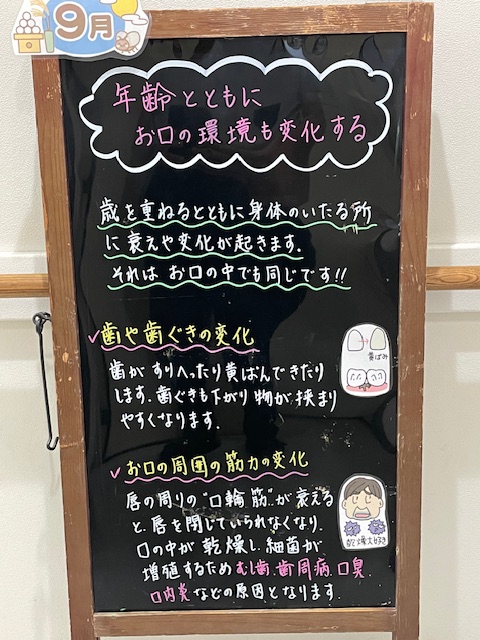 9月
年齢とともに
お口の環境も変化する
歳を重ねるとともに身体のいたる所
に衰えや変化が起きます。
それは お口の中でも同じです!!
✓歯や歯ぐきの変化
歯が すりへったり黄ばんできたり
します。歯ぐきも下がり 物が挟まり
やすくなります。
黄ばみ
✓お口の周囲の筋力の変化
唇の周りの"口輪筋"が衰える
と、唇を閉じていられなくなり、
口の中が乾燥し、細菌が
増殖するため むし歯、歯周病、口臭、
口内炎 などの原因となります。
乾燥大好き